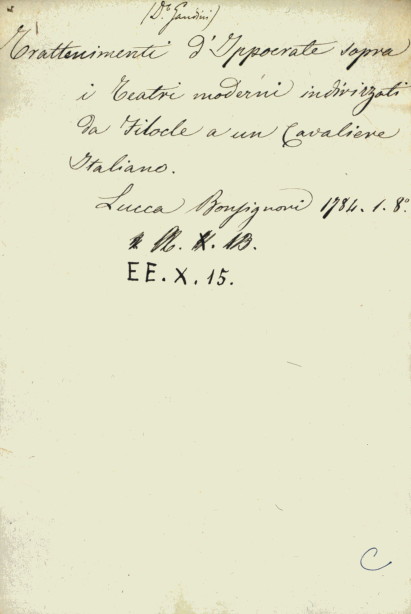 (Dr. Gandini)
Trattenimenti d'Ippocrate sopra
i Teatri moderni indirizzati
da Filocle a un Cavaliere
Italiano.
Lucca Bonsignori 1784. 1. 8°.
X. 13.
EE. X. 15.
C